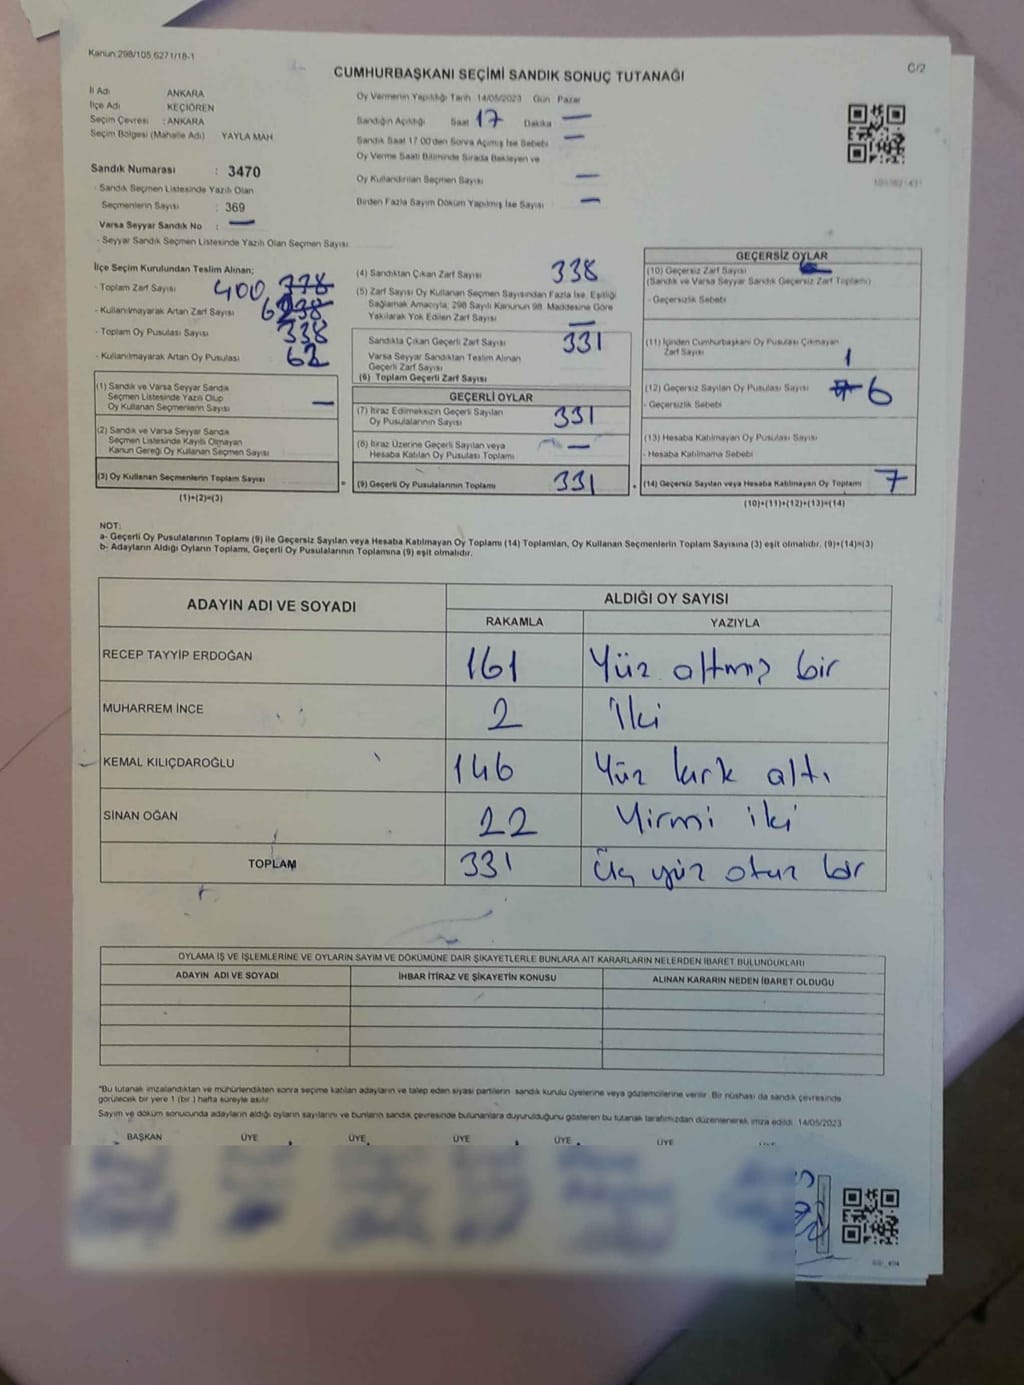 Kanun:298/105,6271/18-1
C/2
CUMHURBAŞKANI SEÇİMİ SANDIK SONUÇ TUTANAĞI
İl Adı ANKARA
İlçe Adı KEÇİÖREN
Seçim Çevresi : ANKARA
Seçim Bölgesi (Mahalle Adı) YAYLA MAH
Sandık Numarası : 3470
- Sandık Seçmen Listesinde Yazılı Olan
Seçmenlerin Sayısı : 369
Varsa Seyyar Sandık No : —
- Seyyar Sandık Seçmen Listesinde Yazılı Olan Seçmen Sayısı
Oy Vermenin Yapıldığı Tarih 14/05/2023 Gün Pazar
Sandığın Açıldığı Saat 17 Dakika —
Sandık Saat 17.00'den Sonra Açılmış İse Sebebi —
Oy Verme Saati Bitiminde Sırada Bekleyen ve
Oy Kullandırılan Seçmen Sayısı —
Birden Fazla Sayım Döküm Yapılmış İse Sayısı —
İlçe Seçim Kurulundan Teslim Alınan;
- Toplam Zarf Sayısı 400
- Kullanılmayarak Artan Zarf Sayısı
- Toplam Oy Pusulası Sayısı 338
- Kullanılmayarak Artan Oy Pusulası 62
(1) Sandık ve Varsa Seyyar Sandık
Seçmen Listesinde Yazılı Olup
Oy Kullanan Seçmenlerin Sayısı —
(2) Sandık ve Varsa Seyyar Sandık
Seçmen Listesinde Kayıtlı Olmayan
Kanun Gereği Oy Kullanan Seçmen Sayısı
(3) Oy Kullanan Seçmenlerin Toplam Sayısı
(1)+(2)=(3)
(4) Sandıktan Çıkan Zarf Sayısı 338
(5) Zarf Sayısı Oy Kullanan Seçmen Sayısından Fazla İse, Eşitliği
Sağlamak Amacıyla; 298 Sayılı Kanunun 98. Maddesine Göre
Yakılarak Yok Edilen Zarf Sayısı —
Sandıkta Çıkan Geçerli Zarf Sayısı 331
Varsa Seyyar Sandıktan Teslim Alınan
Geçerli Zarf Sayısı
(6) Toplam Geçerli Zarf Sayısı
GEÇERLİ OYLAR
(7) İtiraz Edilmeksizin Geçerli Sayılan
Oy Pusulalarının Sayısı 331
(8) İtiraz Üzerine Geçerli Sayılan veya
Hesaba Katılan Oy Pusulası Toplamı —
(9) Geçerli Oy Pusulalarının Toplamı 331
GEÇERSİZ OYLAR
(10) Geçersiz Zarf Sayısı
(Sandık ve Varsa Seyyar Sandık Geçersiz Zarf Toplamı)
- Geçersizlik Sebebi
(11) İçinden Cumhurbaşkanı Oy Pusulası Çıkmayan
Zarf Sayısı 1
(12) Geçersiz Sayılan Oy Pusulası Sayısı 6
- Geçersizlik Sebebi
(13) Hesaba Katılmayan Oy Pusulası Sayısı
- Hesaba Katılmama Sebebi
(14) Geçersiz Sayılan veya Hesaba Katılmayan Oy Toplamı 7
(10)+(11)+(12)+(13)=(14)
NOT:
a- Geçerli Oy Pusulalarının Toplamı (9) ile Geçersiz Sayılan veya Hesaba Katılmayan Oy Toplamı (14) Toplamları, Oy Kullanan Seçmenlerin Toplam Sayısına (3) eşit olmalıdır. (9)+(14)=(3)
b- Adayların Aldığı Oyların Toplamı, Geçerli Oy Pusulalarının Toplamına (9) eşit olmalıdır.
ADAYIN ADI VE SOYADI ALDIĞI OY SAYISI
RAKAMLA YAZIYLA
RECEP TAYYİP ERDOĞAN 161 Yüz altmış bir
MUHARREM İNCE 2 İki
KEMAL KILIÇDAROĞLU 146 Yüz kırk altı
SİNAN OĞAN 22 Yirmi iki
TOPLAM 331 Üç yüz otuz bir
OYLAMA İŞ VE İŞLEMLERİNE VE OYLARIN SAYIM VE DÖKÜMÜNE DAİR ŞİKAYETLERLE BUNLARA AİT KARARLARIN NELERDEN İBARET BULUNDUKLARI
ADAYIN ADI VE SOYADI İHBAR İTİRAZ VE ŞİKAYETİN KONUSU ALINAN KARARIN NEDEN İBARET OLDUĞU
"Bu tutanak imzalandıktan ve mühürlendikten sonra seçime katılan adayların ve talep eden siyasi partilerin sandık kurulu üyelerine veya gözlemcilerine verilir. Bir nüshası da sandık çevresinde
görülecek bir yere 1 (bir) hafta süreyle asılır.
Sayım ve döküm sonucunda adayların aldığı oyların sayılarını ve bunların sandık çevresinde bulunanlara duyurulduğunu gösteren bu tutanak tarafımızdan düzenlenerek imza edildi. 14/05/2023
BAŞKAN ÜYE ÜYE ÜYE ÜYE ÜYE